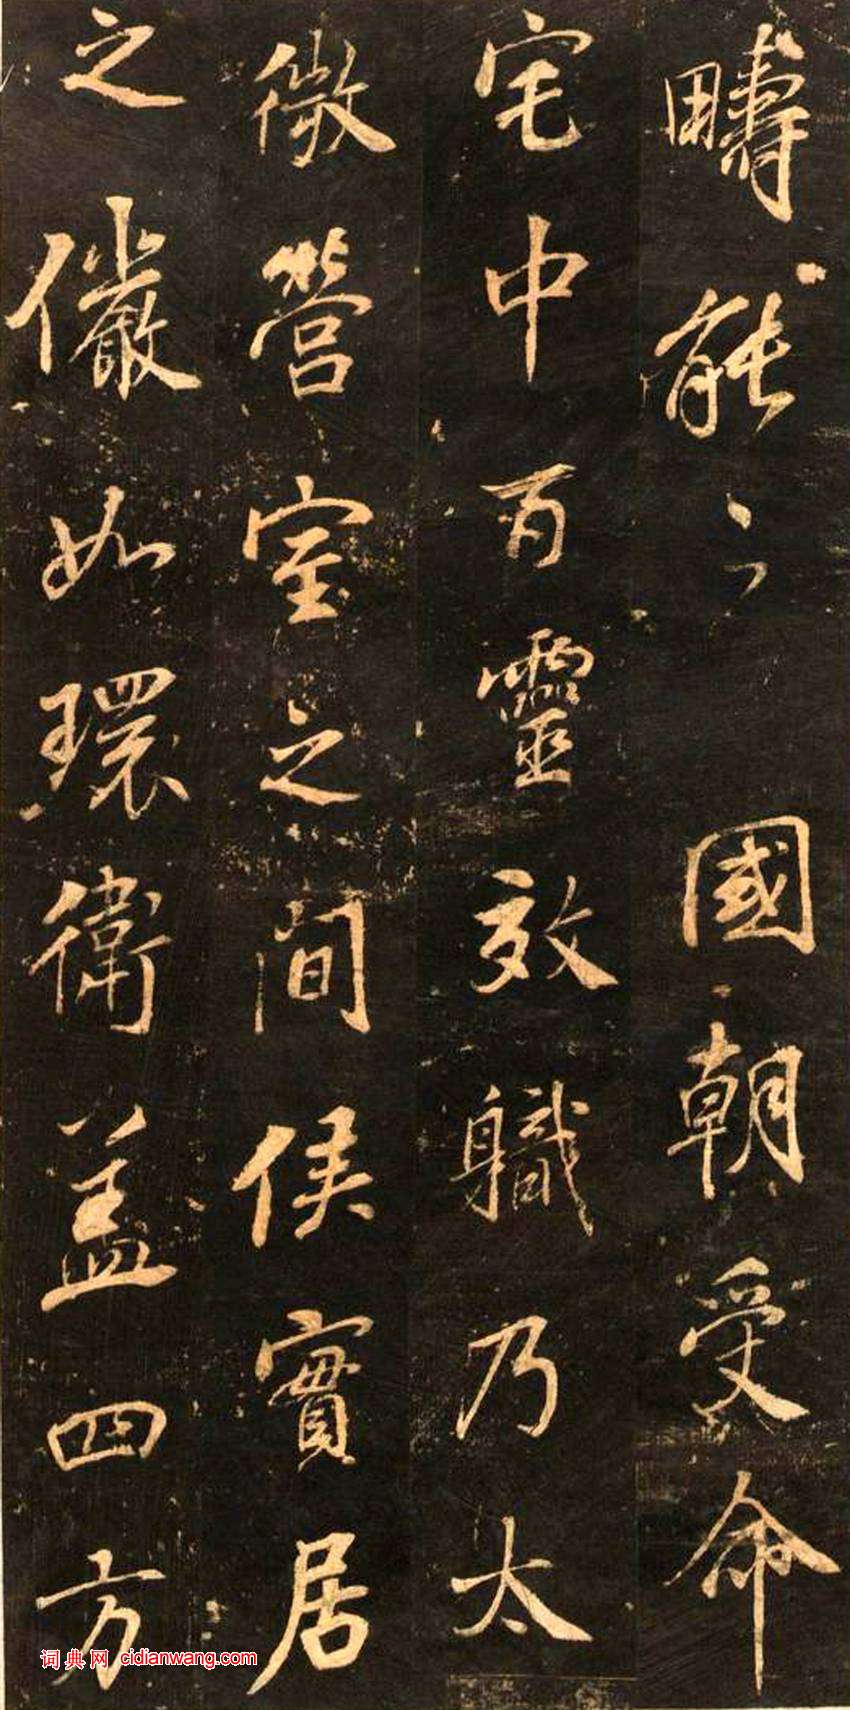 疇能之 國朝受命
宅中百靈效職乃太
微營室之間侯實居
之儼如環衛蓋四方
词典网 cidianwang.com